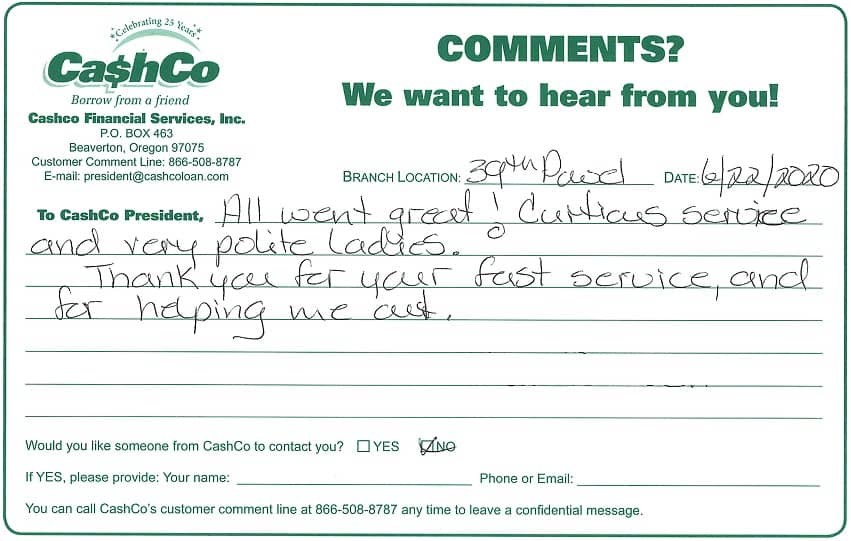 Celebrating 25 Years
Ca$hCo
Borrow from a friend
Cashco Financial Services, Inc.
P.O. BOX 463
Beaverton, Oregon 97075
Customer Comment Line: 866-508-8787
E-mail: president@cashcoloan.com
COMMENTS?
We want to hear from you!
BRANCH LOCATION: 39th Powel DATE: 6/22/2020
To CashCo President, All went great! Curtious service
and very polite Ladies.
Thank you for your fast service, and
for helping me out.
Would you like someone from CashCo to contact you? YES NO
If YES, please provide: Your name: Phone or Email:
You can call CashCo's customer comment line at 866-508-8787 any time to leave a confidential message.